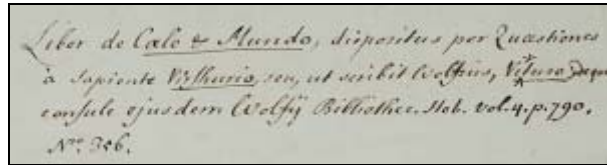 Liber de Cælo & Mundo, dispositus per Quæstiones
à Sapiente seu, ut scribit Wolfius,
consule ejusdem Wolfij Bibliothec. Heb. vol. 4. p. 790.
Nro. 386.